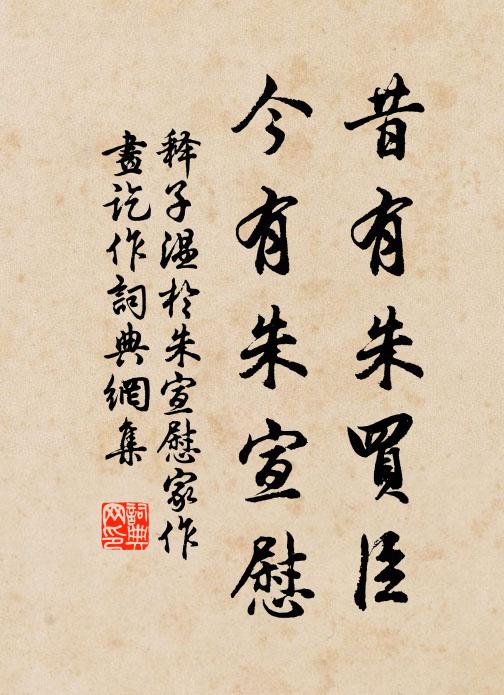 昔有朱買臣
今有朱宣慰
釋子溫於朱宣慰家作
畫訖作詞典網集
詞典
网印